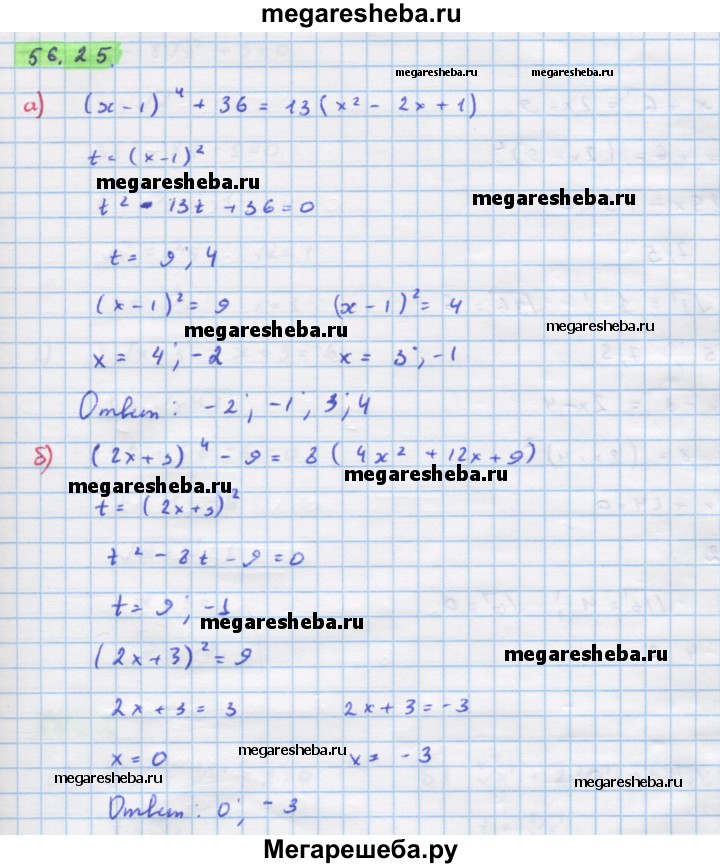 megaresheba.ru
56.25.
megaresheba.ru megaresheba.ru
а) (x-1)⁴ + 36 = 13(x² - 2x + 1)
t = (x-1)²
megaresheba.ru
megaresheba.ru
t² - 13t + 36 = 0
t = 9; 4
(x-1)² = 9 (x-1)² = 4
megaresheba.ru megaresheba.ru
x = 4; -2 x = 3; -1
Ответ: -2; -1; 3; 4
б) (2x+3)⁴ - 9 = 8(4x² + 12x + 9)
megaresheba.ru megaresheba.ru
t = (2x+3)²
t² - 8t - 9 = 0
t = 9; -1
megaresheba.ru
(2x+3)² = 9
megaresheba.ru
2x + 3 = 3 2x + 3 = -3
megaresheba.ru
x = 0 x = -3
megaresheba.ru megaresheba.ru
Ответ: 0; -3
Мегарешеба.ру